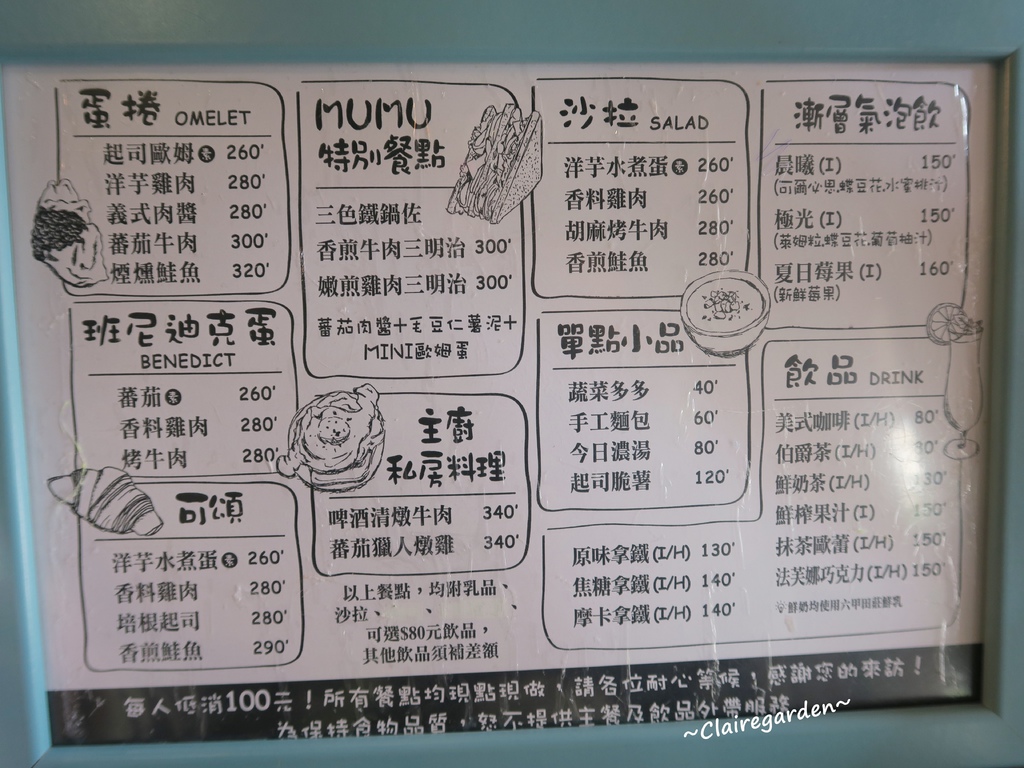 蛋捲 OMELET
起司歐姆 素 260'
洋芋雞肉 280'
義式肉醬 280'
蕃茄牛肉 300'
煙燻鮭魚 320'
班尼迪克蛋
BENEDICT
蕃茄 素 260'
香料雞肉 280'
烤牛肉 280'
可頌
洋芋水煮蛋 素 260'
香料雞肉 280'
培根起司 280'
香煎鮭魚 290'
MUMU
特別餐點
三色鐵鍋佐
香煎牛肉三明治 300'
嫩煎雞肉三明治 300'
蕃茄肉醬+毛豆仁薯泥+
MINI歐姆蛋
主廚
私房料理
啤酒清燉牛肉 340'
蕃茄獵人燉雞 340'
以上餐點，均附乳品、
沙拉、 、 、
可選$80元飲品，
其他飲品須補差額
沙拉 SALAD
洋芋水煮蛋 素 260'
香料雞肉 260'
胡麻烤牛肉 280'
香煎鮭魚 280'
單點小品
蔬菜多多 40'
手工麵包 60'
今日濃湯 80'
起司脆薯 120'
原味拿鐵(I/H) 130'
焦糖拿鐵(I/H) 140'
摩卡拿鐵(I/H) 140'
漸層氣泡飲
晨曦(I) 150'
(可爾必思.蝶豆花.水蜜桃汁)
極光(I) 150'
(萊姆粒.蝶豆花.葡萄柚汁)
夏日莓果(I) 160'
(新鮮莓果)
飲品 DRINK
美式咖啡(I/H) 80'
伯爵茶(I/H) 80'
鮮奶茶(I/H) 130'
鮮榨果汁(I) 150'
抹茶歐蕾(I/H) 150'
法芙娜巧克力(I/H) 150'
鮮奶均使用六甲田莊鮮乳
每人低消100元！所有餐點均現點現做，請各位耐心等候！感謝您的來訪！
為保持食物品質，恕不提供主餐及飲品外帶服務
~Clairegarden~